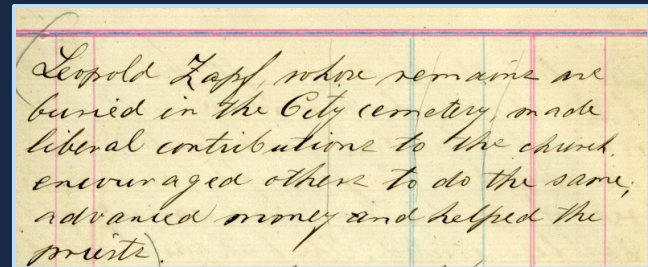 (Leopold Zapf, whose remains are
buried in the City cemetery, made
liberal contributions to the church,
encouraged others to do the same;
advanced money and helped the
priests).